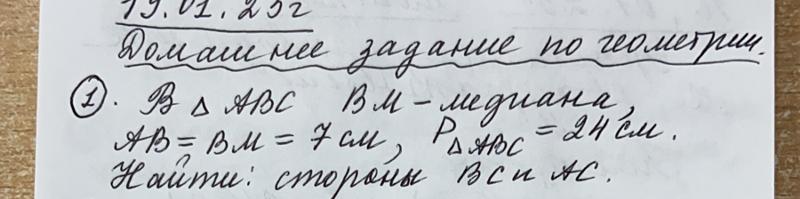 19.01.23г
Домашнее задание по геометрии.
1. В △ ABC BM - медиана,
AB = BM = 7 см, P△ABC = 24 см.
Найти: стороны BC и AC.